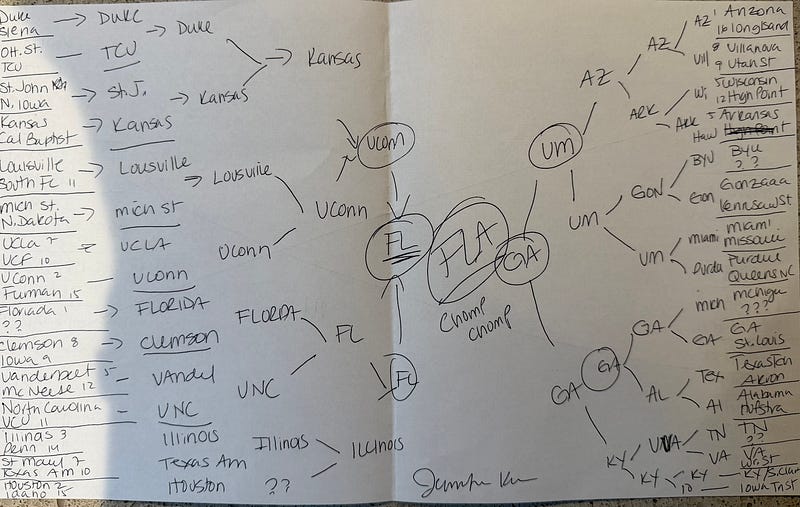 Duke
Siena
OH. St.
TCU
St. John
N. Iowa
Kansas
Cal Baptist
Louisville
South FL 11
Mich St.
N. Dakota
UCLA 7
UCF 10
UConn 2
Furman 15
Floriada 1
??
Clemson 8
Iowa 9
Vanderbeet 5
McNeese 12
North Carolina
VCU 11
Illinas 3
Penn 14
St Mary 7
Texas Am 10
Houston 2
Idaho 15
DUKE
TCU
St J.
Kansas
Lousville
mich st
UCLA
UConn
FLORIDA
Clemson
VAndel
UNC
Illinois
Texas Am
Houston
Duke
Kansas
Lousville
UConn
FLORDA
UNC
Illinois
??
Kansas
UConn
FL
ILLINOIS
UConn
FL
FL
FLA
Chomp
Chomp
GA
UM
AZ
UM
GA
GA
AZ
ARK
GON
UM
GA
AL
UVA
KY
KY
AZ
Vill
Wi
ARK
Haw
BYU
Gon
miami
Purdu
mich
GA
Tex
Al
TN
VA
KY
10
1 Arizona
16 long Island
8 Villanova
9 Utah St
5 Wisconsin
12 High Point
5 Arkansas
High Point
BYU
? ?
Gonzaga
Kennsaw St
miami
missouri
Purdue
Queens NC
michiga
???
GA
St. Louis
Texas Tech
Akron
Alabama
Hofstra
TN
??
VA
Wr. St
KY/S. Clara
Iowa Tnst